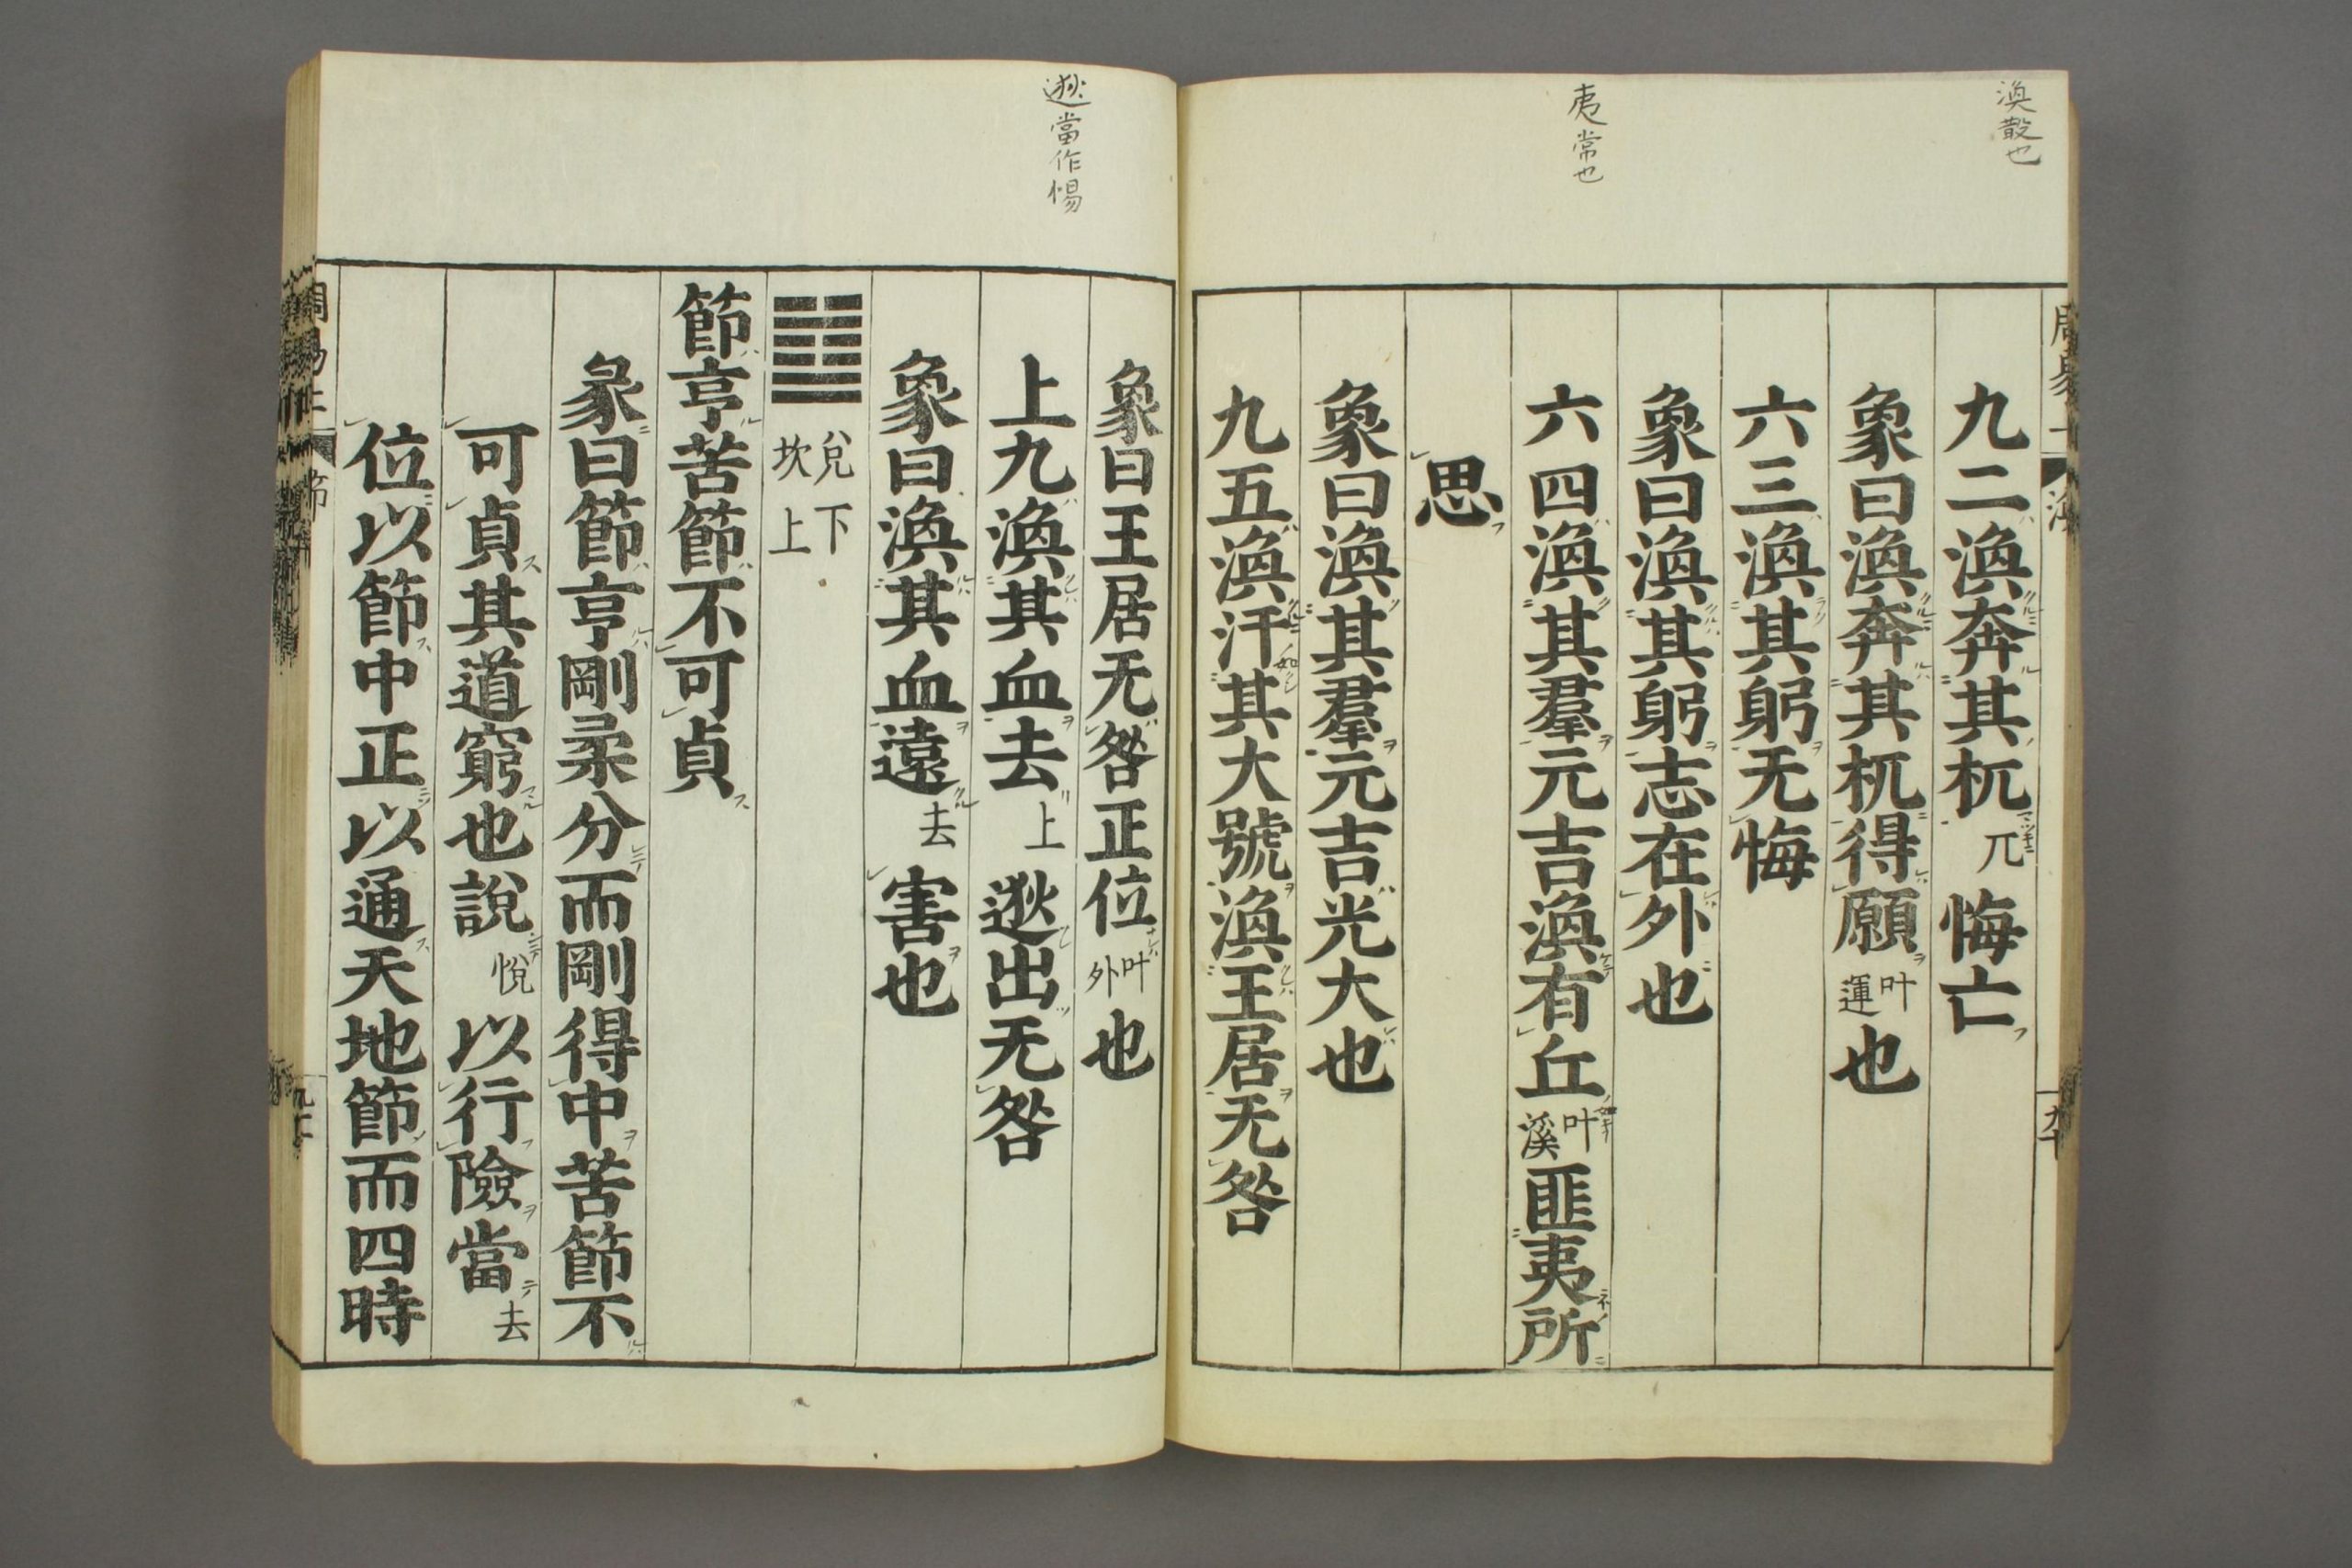 渙散也
夷常也
九二渙奔其杌兀悔亡
象曰渙奔其杌得願叶運也
六三渙其躬无悔
象曰渙其躬志在外也
六四渙其羣元吉渙有丘叶溪匪夷所
思
象曰渙其羣元吉光大也
九五渙汗其大號渙王居无咎
逖當作惕
象曰王居无咎正位叶外也
上九渙其血去上逖出无咎
象曰渙其血遠去害也
䷻兌下坎上
節亨苦節不可貞
彖曰節亨剛柔分而剛得中苦節不
可貞其道窮也說悅以行險當去
位以節中正以通天地節而四時